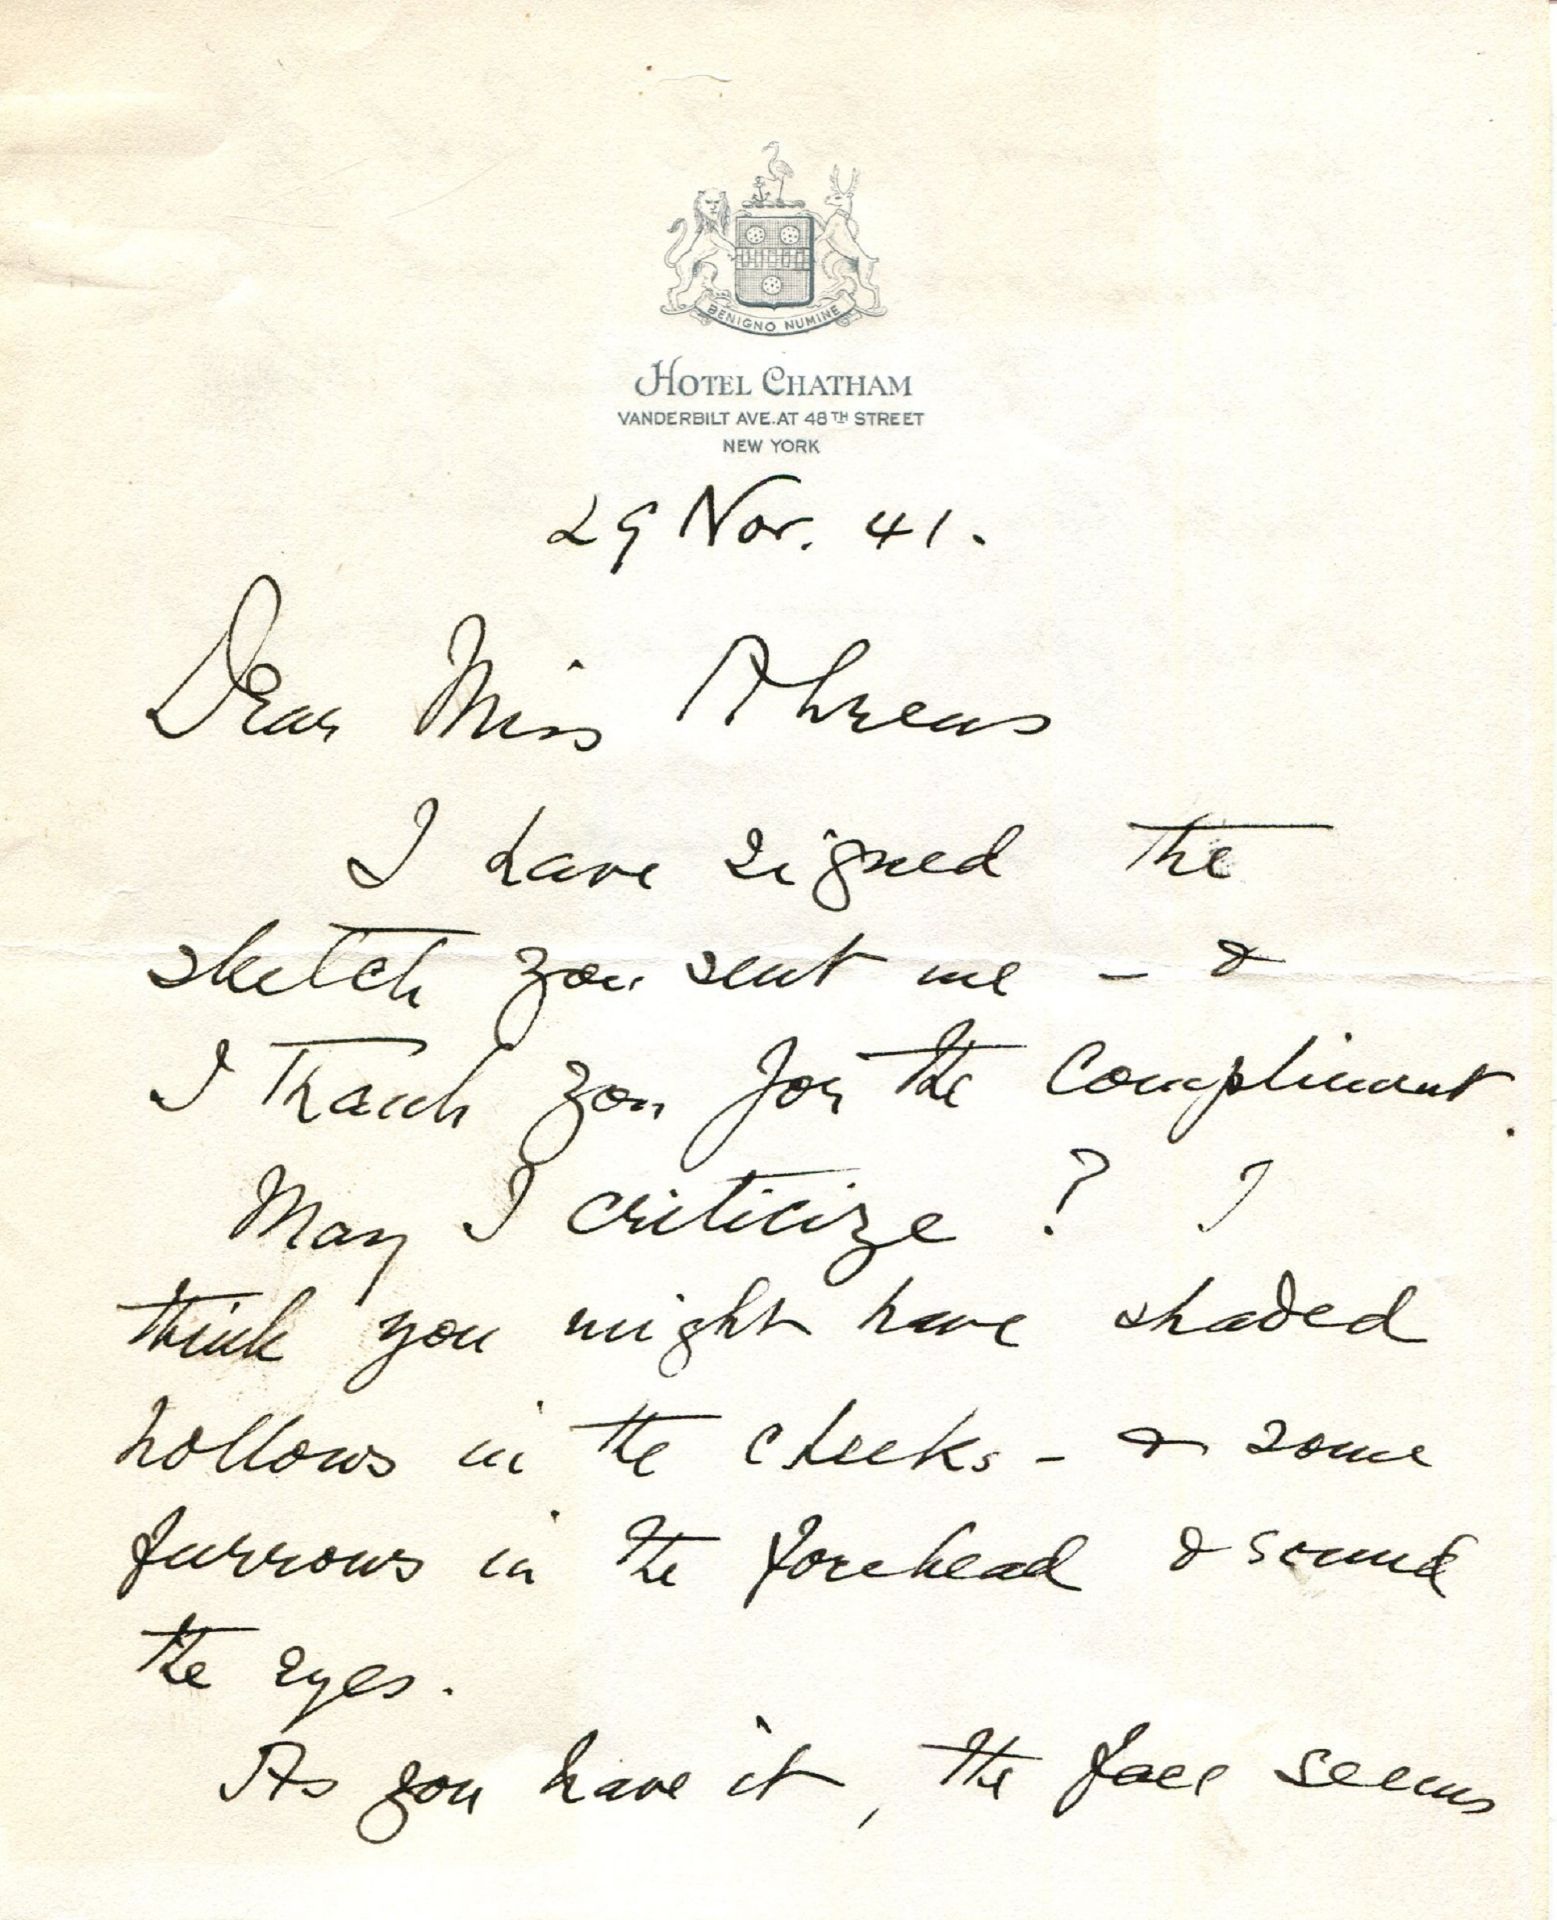 BENIGNO NUMINE
HOTEL CHATHAM
VANDERBILT AVE. AT 48TH STREET
NEW YORK
29 Nov. 41.
Dear Miss Ahrens
I have signed the
sketch you sent me - &
I thank you for the compliment.
May I criticize? I
think you might have shaded
hollows in the cheeks - & some
furrows in the forehead & round
the eyes.
As you have it, the face seems